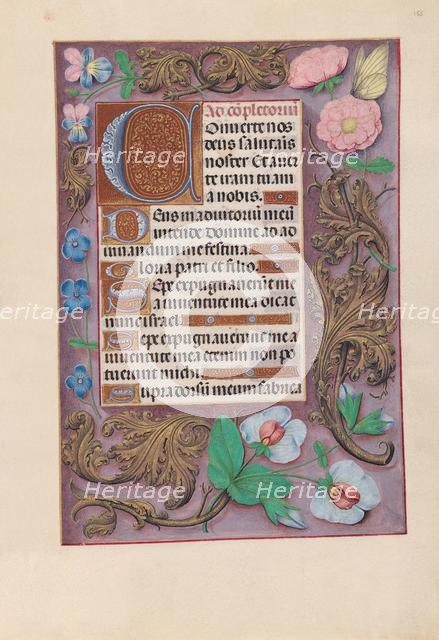 155
Ad cõpletoriũ
Onuerte nos
deus salutaris
noster Et auer
te iram tuam
a nobis.
Deus in adiutoriũ meũ
intende domine ad ad
iuuandum me festina.
Gloria patri et filio.
Sepe expugnauerũt me
a iuuentute mea dicat
nunc israel
Sepe expugnauerunt me a
iuuentute mea etenim non po
tuerunt michi.
Supra dorsũ meum fabrica
Heritage
Heritage
Heritage
Heritage
Heritage
Heritage
Heritage